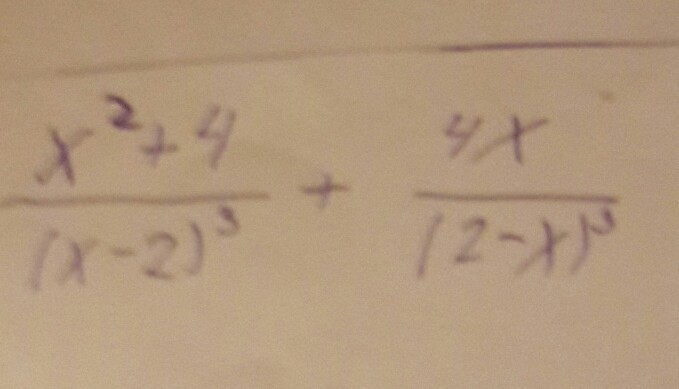 x²+4 / (x-2)³ + 4x / (2-x)³